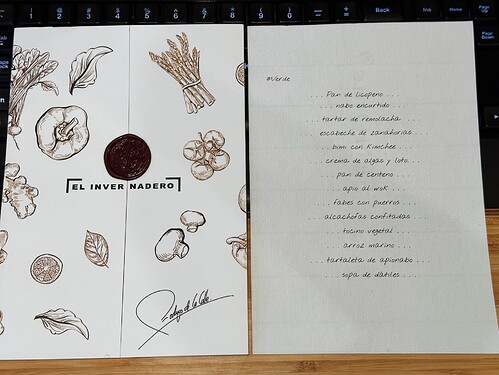 EL INVERNADERO
#Verde
. . . Pan de licopeno . . .
. . . nabo encurtido . . .
. . . tartar de remolacha . . .
. . . escabeche de zanahorias . . .
. . . bimi con Kimchee . . .
. . . crema de algas y loto. . .
. . . pan de centeno . . .
. . . apio al wok . . .
. . . fabes con puerros . . .
. . . alcachofas confitadas . . .
. . . tocino vegetal . . .
. . . arroz marino . . .
. . . tartaleta de apionabo . . .
. . . sopa de dátiles . . .
Back
Ins
Home
Page
Up
Page
Down